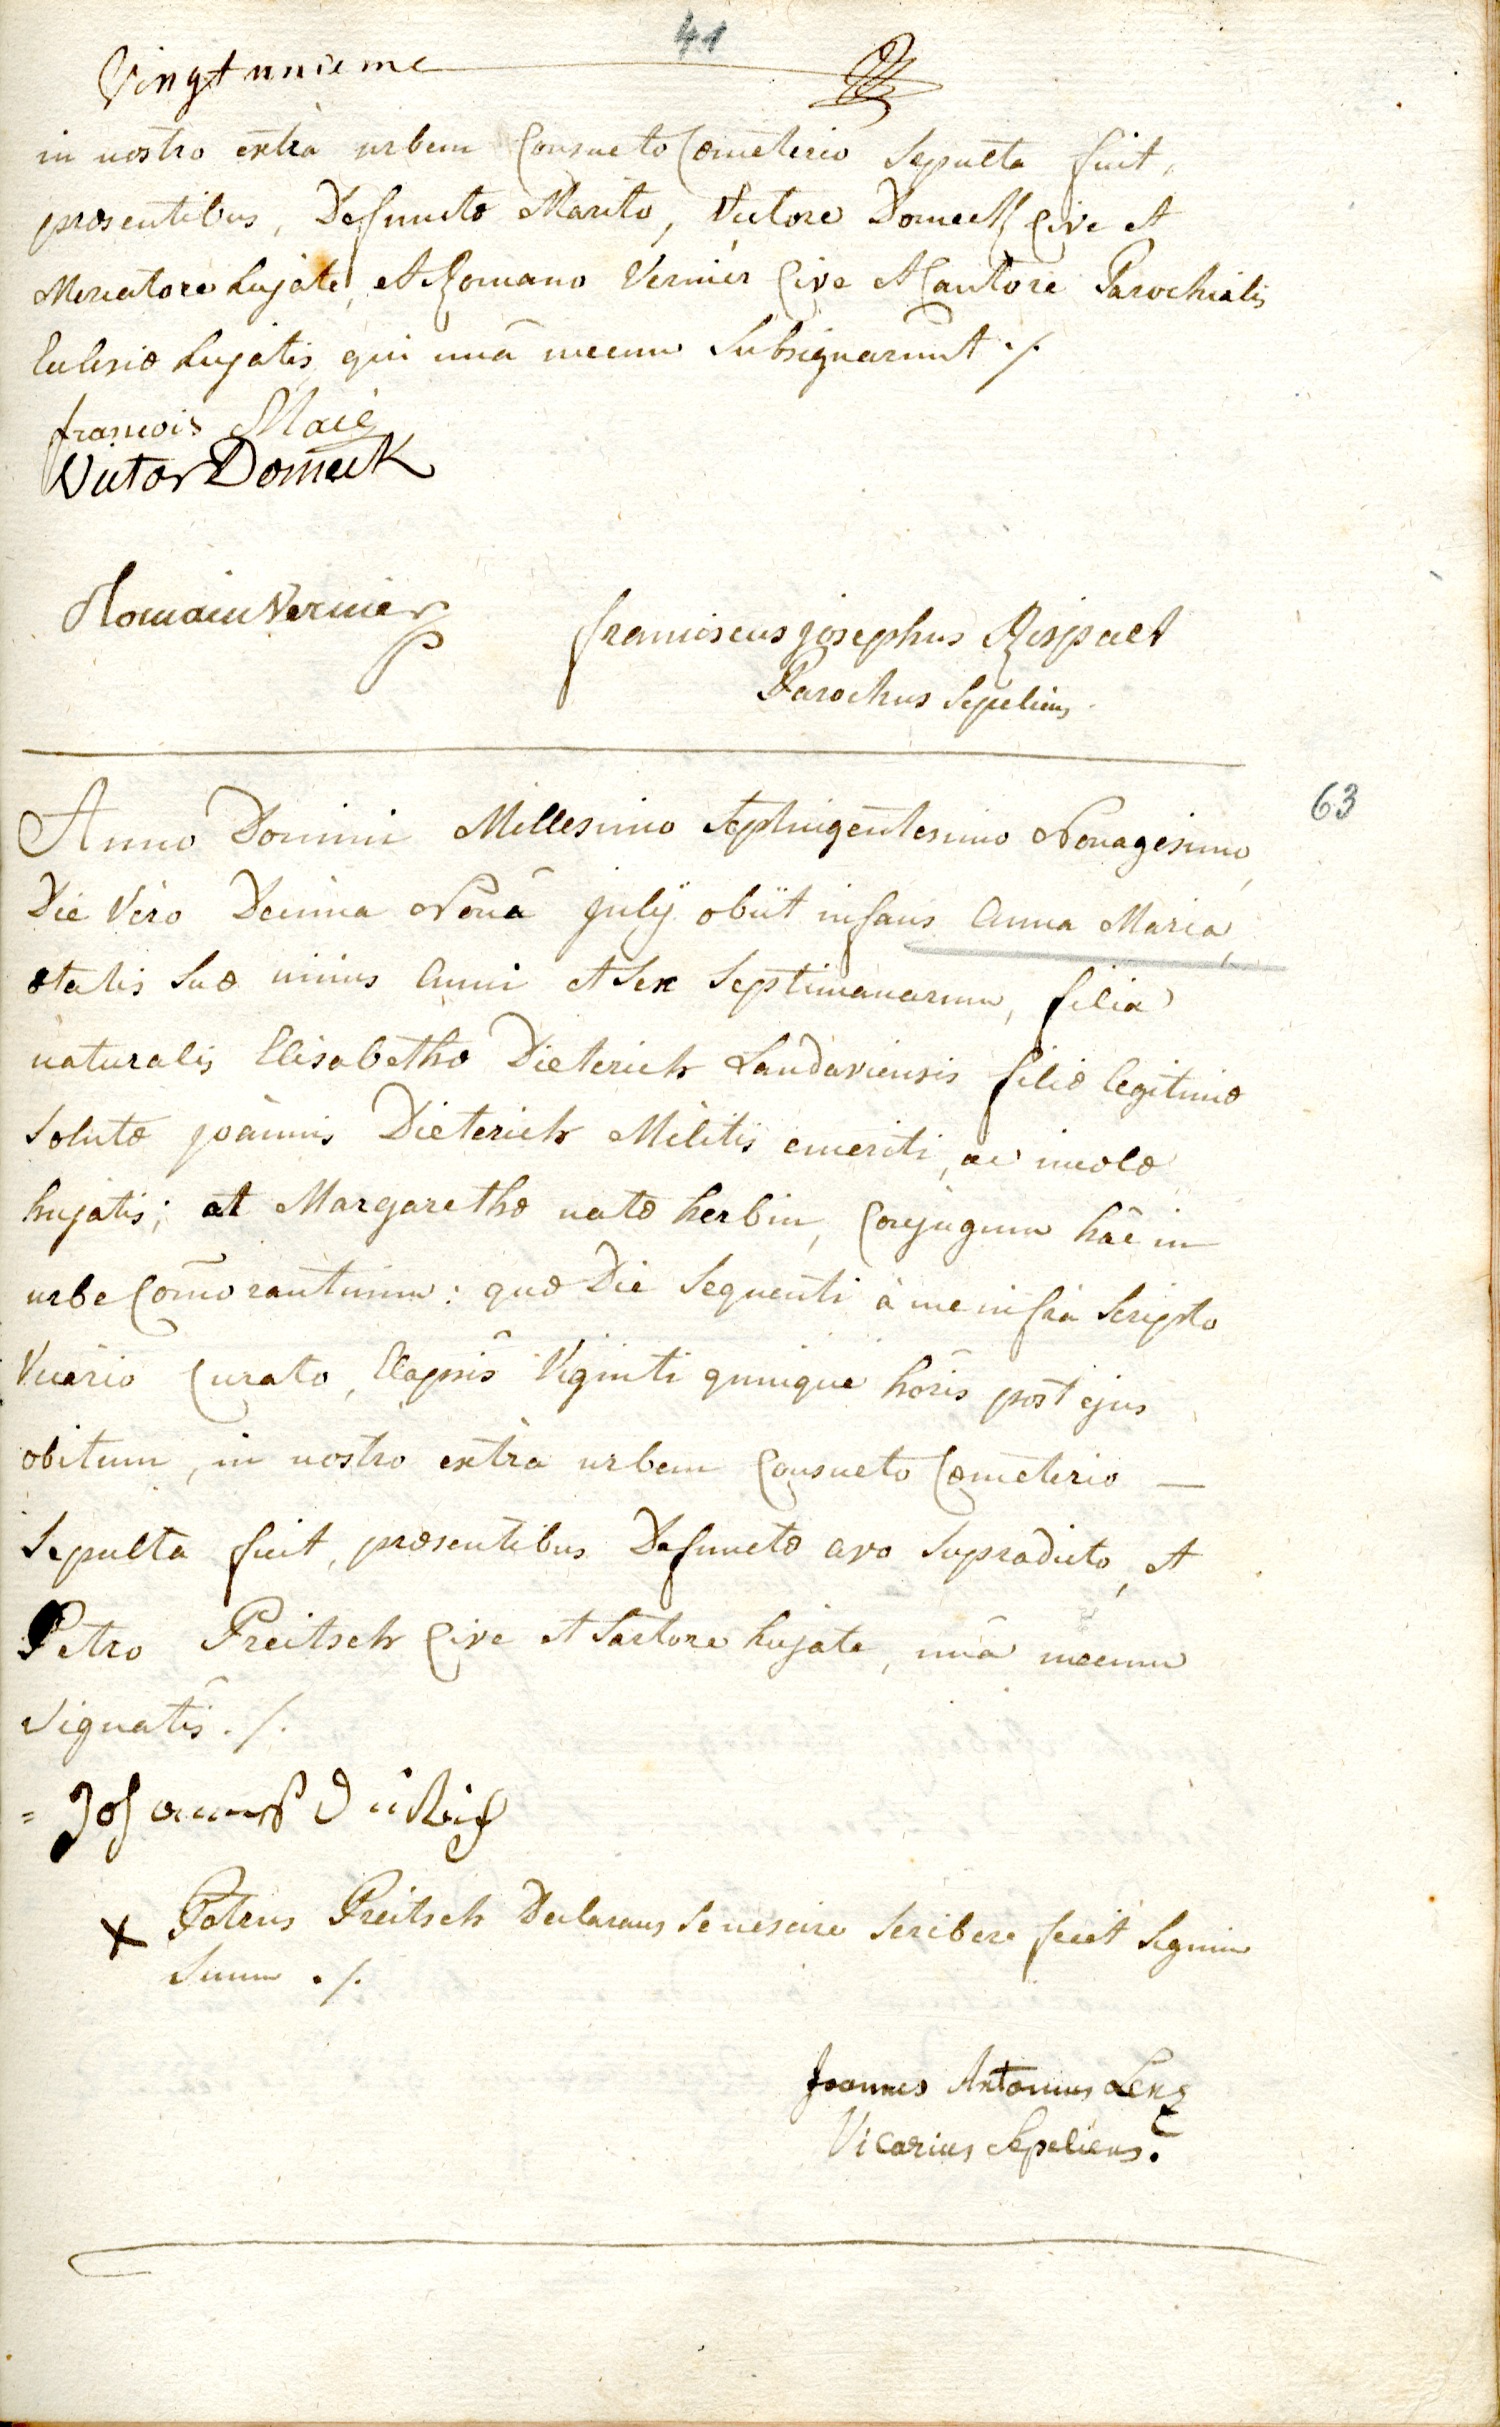 41
Vingt unieme
in nostro extrà urbem Consueto Cœmeterio Sepulta fuit,
præsentibus, Defunctæ Marito, Victore Domeck Cive et
Mercatore hujate, et Romano Vernier Cive et Cantore Parochialis
Ecclesiæ hujatis, qui unâ mecum Subsignarunt ./.
francois Macé
Victor Domeck
Romain Vernier
franciscus josephus Rispalt
Parochus Sepeliens.
63
Anno Domini Millesimo Septingentesimo Nonagesimo,
Die Vero Decima Nonâ julÿ obiit infans Anna Maria,
ætatis Suæ unius Anni et Sex Septimanarum, filia
naturalis Elisabethæ Dieterich Landaviensis filiæ legitimæ
Solutæ joannis Dieterich Militis emeriti, ac incolæ
hujatis; at Margarethæ natæ herbin, Conjugum hâc in
urbe Com̄orantium: quæ Die Sequenti à me infrà Scripto
Vicario Curato, Elapsis Viginti quinque horis post ejus
obitum, in nostro extrà urbem Consueto Cœmeterio —
Sepulta fuit, præsentibus Defunctæ avo Supradicto, et
Petro Preitsch Cive et Sartore hujate, unâ mecum
Signatis ./.
= Johannes Dieterich
X Petrus Preitsch Declarans Se nescire Scribere fecit Signum
Suum ./.
Joannes Antonius Lenz
Vicarius Sepeliens.